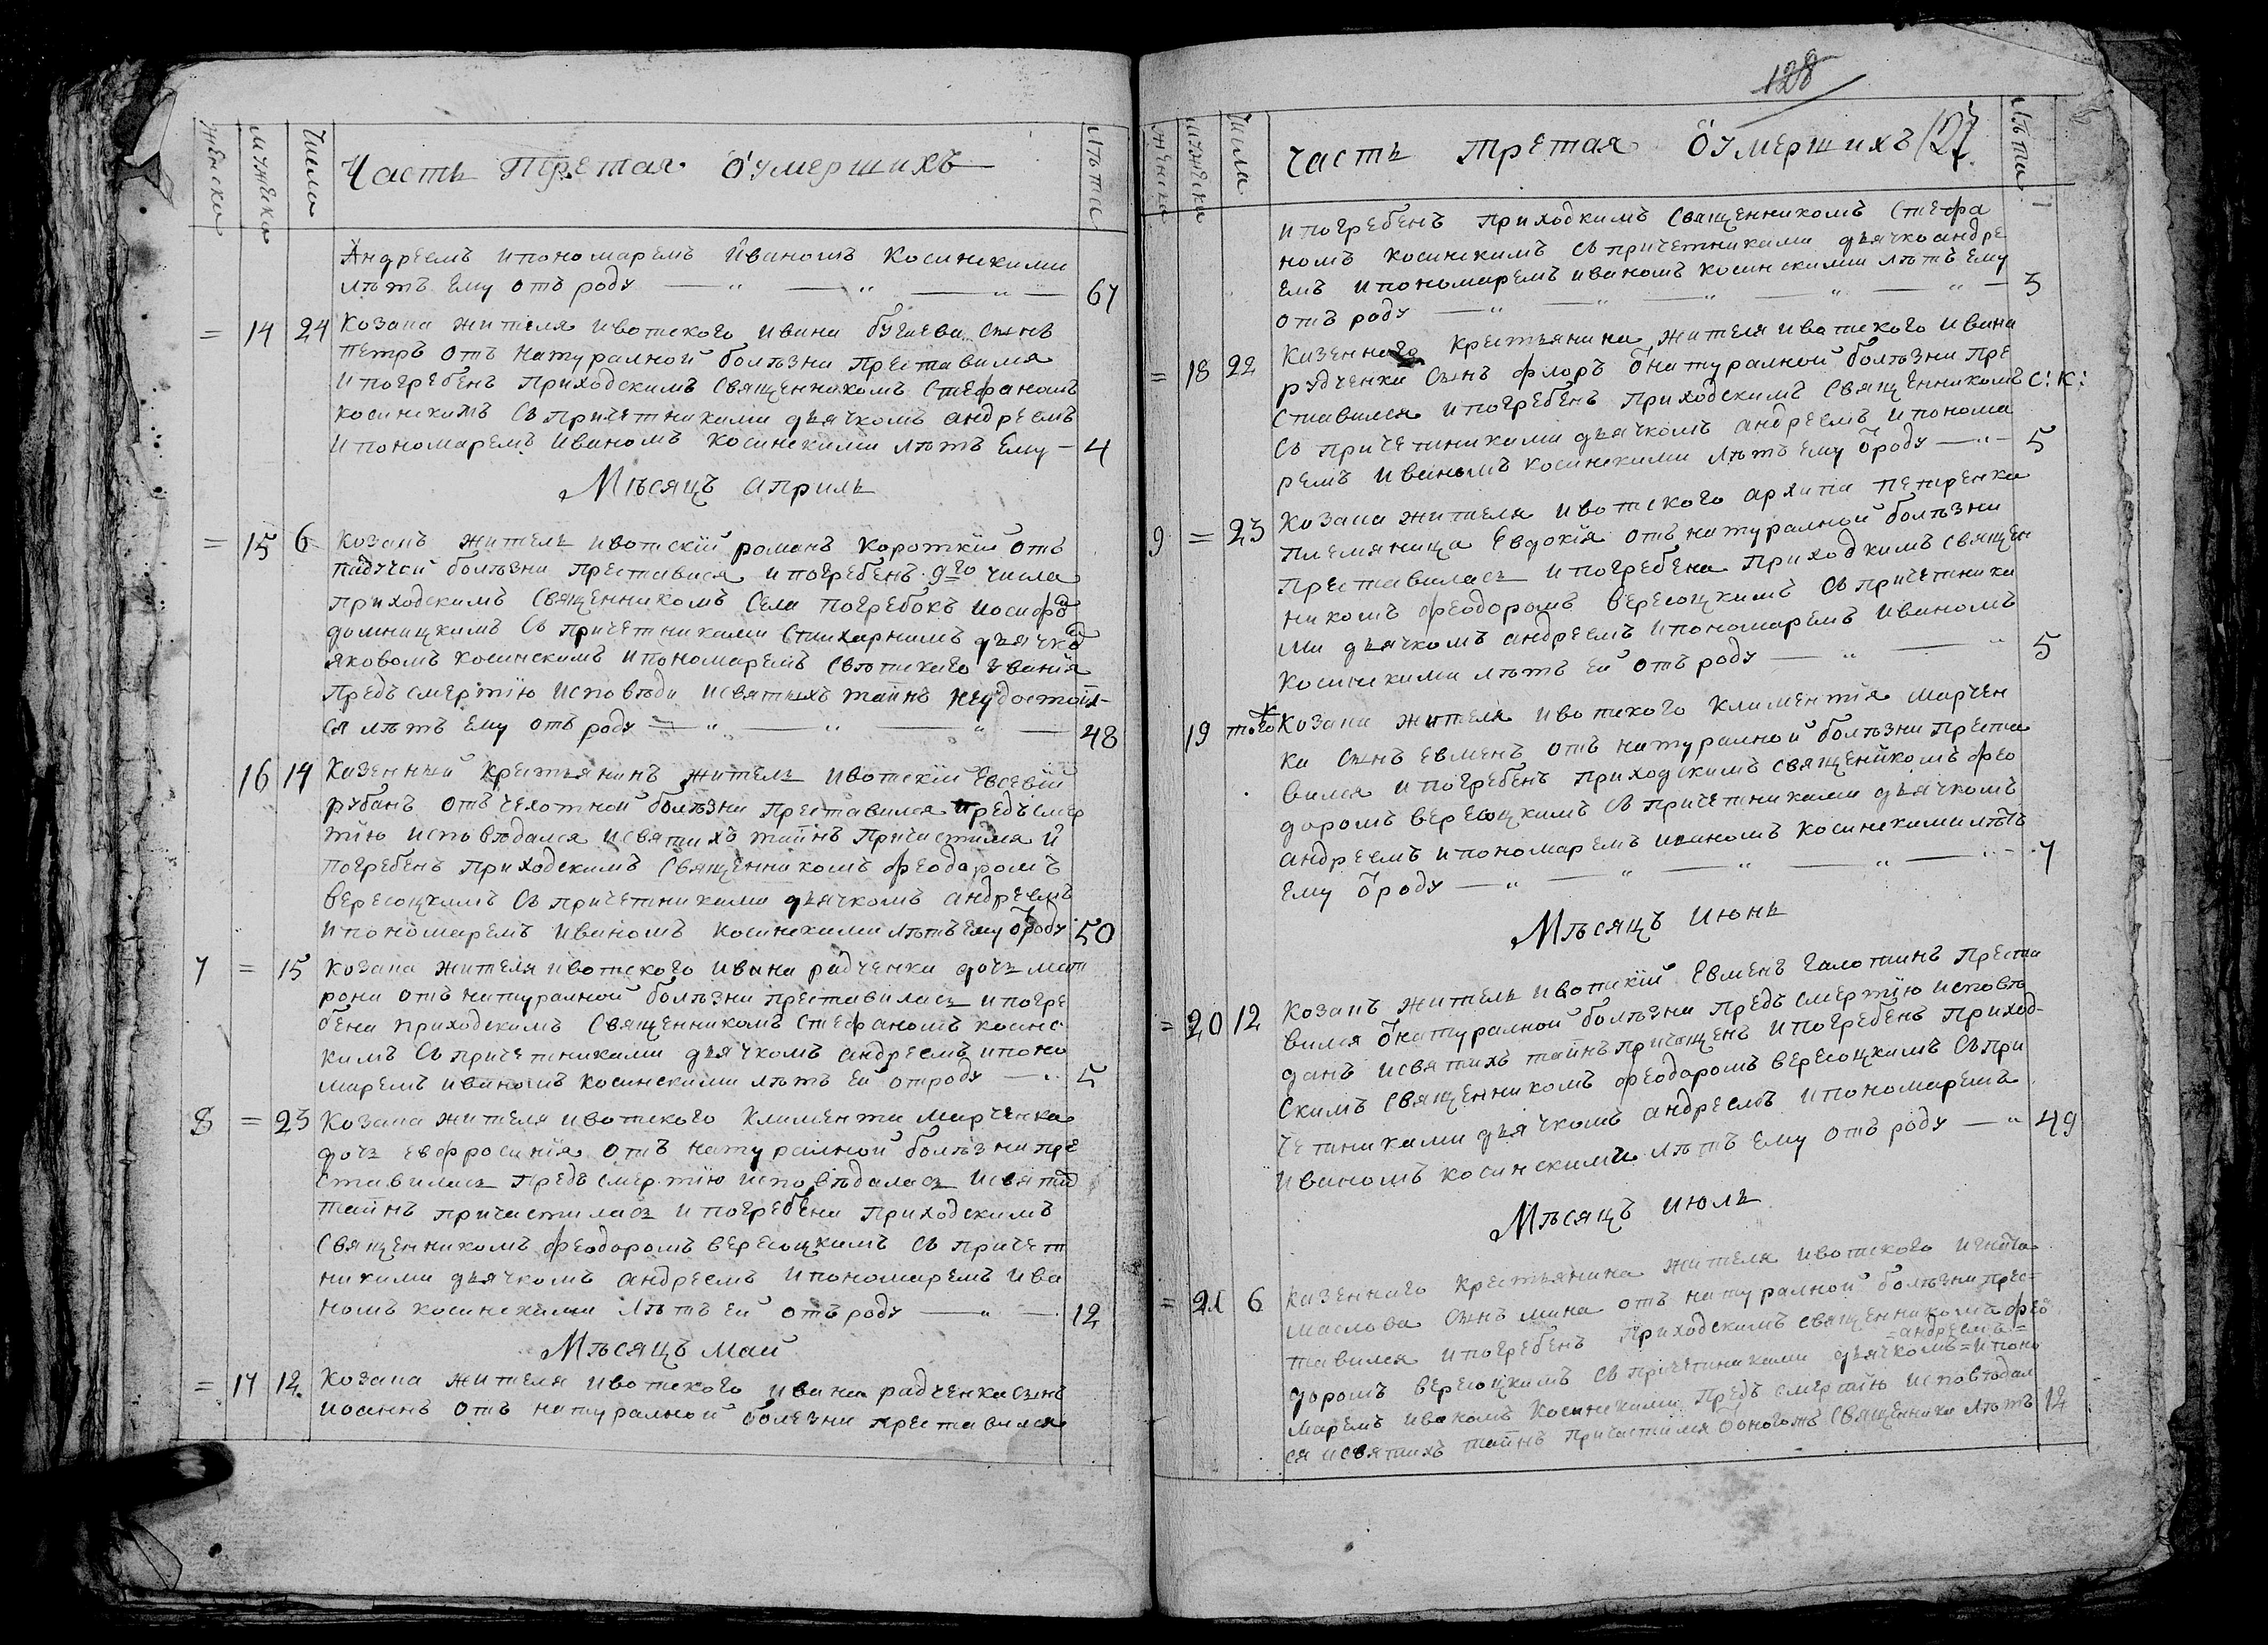 женска мужеска Число Часть Третая Оумершихъ Лѣта
Андреемъ ипономаремъ Иваномъ Косинскими
лѣтъ Ему отъ роду — „ — „ — „ — 67
= 14 24 Козака жителя ивотского ивана бугаева сынъ
петръ отъ натуралной болѣзни Преставился
И погребенъ Приходскимъ Священникомъ Стефаномъ
косинскимъ Съ причетниками дьячкомъ андреемъ
И пономаремъ Иваномъ Косинскими лѣтъ Ему — 4
Мѣсяцъ априль
= 15 6 козакъ житель ивотскїй романъ короткїй отъ
падучой болѣзни преставися ипогребенъ 9го числа
приходскимъ Священникомъ Села погребокъ иосифо
домницкимъ Съ причетниками Стихарнимъ дьячко
яковомъ косинскимъ ипономаремъ Свѣтского звания
Предъ смертїю исповѣди исвятыхъ таинъ неудостоил-
ся лѣтъ Ему отъ роду — „ — „ — „ — 48
16 14 Казенный крестьянинъ житель ивотскїй Евсевїй
рубанъ отъ чехотной болѣзни преставился предъ смер
тїю исповѣдался исвятихъ таинъ Причастился И
погребенъ приходскимъ Священникомъ феодоромъ
вересоцкимъ Съ причетниками дьячкомъ андреемъ
ипономаремъ иваномъ косинскими лѣтъ Ему Ѿроду 50
7 = 15 козака жителя ивотского ивана радченка дочь мат
рона отъ натуралной болѣзни преставилась ипогре
бена приходскимъ Священникомъ Стефаномъ косинс
кимъ Съ причетниками дьячкомъ андреемъ ипоно
маремъ иваномъ косинскими лѣтъ Ей отроду — „ 5
8 = 23 козака жителя ивотского климента марченка
дочь евфросинїя отъ натуралной болѣзни пре
ставилась предъ смертїю исповѣдалась исвятих
таинъ причастилась ипогребена приходскимъ
Священникомъ феодоромъ вересоцкимъ Съ причет
никами дьячкомъ андреемъ ипономаремъ ива
номъ косинскими лѣтъ Ей отъ роду — „ — 12
Мѣсяцъ май
= 17 12 козака жителя ивотского ивана радченка сынъ
иоаннъ отъ натуралной болезни преставился
128
женска мужеска Числа Часть третая Оумершихъ 127 Лѣта
ипогребенъ приходкимъ Священникомъ Стефа
номъ косинскимъ Съ причетниками дьячко андре
емъ ипономаремъ иваномъ косинскими лѣтъ Ему
отъ роду — „ — „ — „ — „ — „ — 3
= 18 22 Казенного крестьянина жителя ивотского ивана
рудченка Сынъ флоръ Ѿнатуралной болѣзни пре
ставился ипогребенъ приходскимъ Священникомъ С: К:
Съ причетниками дьячкомъ андреемъ ипонома
ремъ иваномъ косинскими лѣтъ Ему Ѿроду — „ — 5
9 = 23 Козака жителя ивотского архипа петренка
племяница Евдокїя отъ натуралной болѣзни
преставилась ипогребена приходкимъ священ
никомъ феодоромъ вересоцкимъ Съ причетника
ми дьячкомъ андреемъ ипономаремъ иваномъ
косинскими лѣтъ Ей отъ роду — „ — „ 5
19 тогож Козака жителя ивотского климентїя марчен
ка Сынъ евменъ отъ натуралной болѣзни преста
вился ипогребенъ приходскимъ священикомъ фео
доромъ вересоцкимъ Съ причетниками дьячкомъ
андреемъ ипономаремъ иваномъ косинскими лѣтъ
ему Ѿроду — „ — „ — „ — „ — „ — 7
Мѣсяцъ июнь
= 20 12 Козакъ житель ивотскїй Евменъ галотинъ преста
вился Ѿнатуралной болѣзни предъ смертїю исповѣ
данъ исвятихъ таинъ причащенъ ипогребенъ приход-
скимъ священникомъ феодоромъ вересоцкимъ Съ при
четниками дьячкомъ андреемъ ипономаремъ
иваномъ косинскими лѣтъ Ему отъ роду — „ 49
Мѣсяцъ июль
= 21 6 казенного крестьянина жителя ивотского игната
маслова Сынъ мина отъ натуралной болѣзни прес-
тавился ипогребенъ приходскимъ священникомъ фео
=андреемъ=
доромъ вересоцкимъ Съ причетниками дьячкомъ= ипоно
маремъ иваномъ косинскими предъ смертїю исповѣдал
ся исвятихъ таинъ причастился Ѿоногожъ священника лѣтъ 12